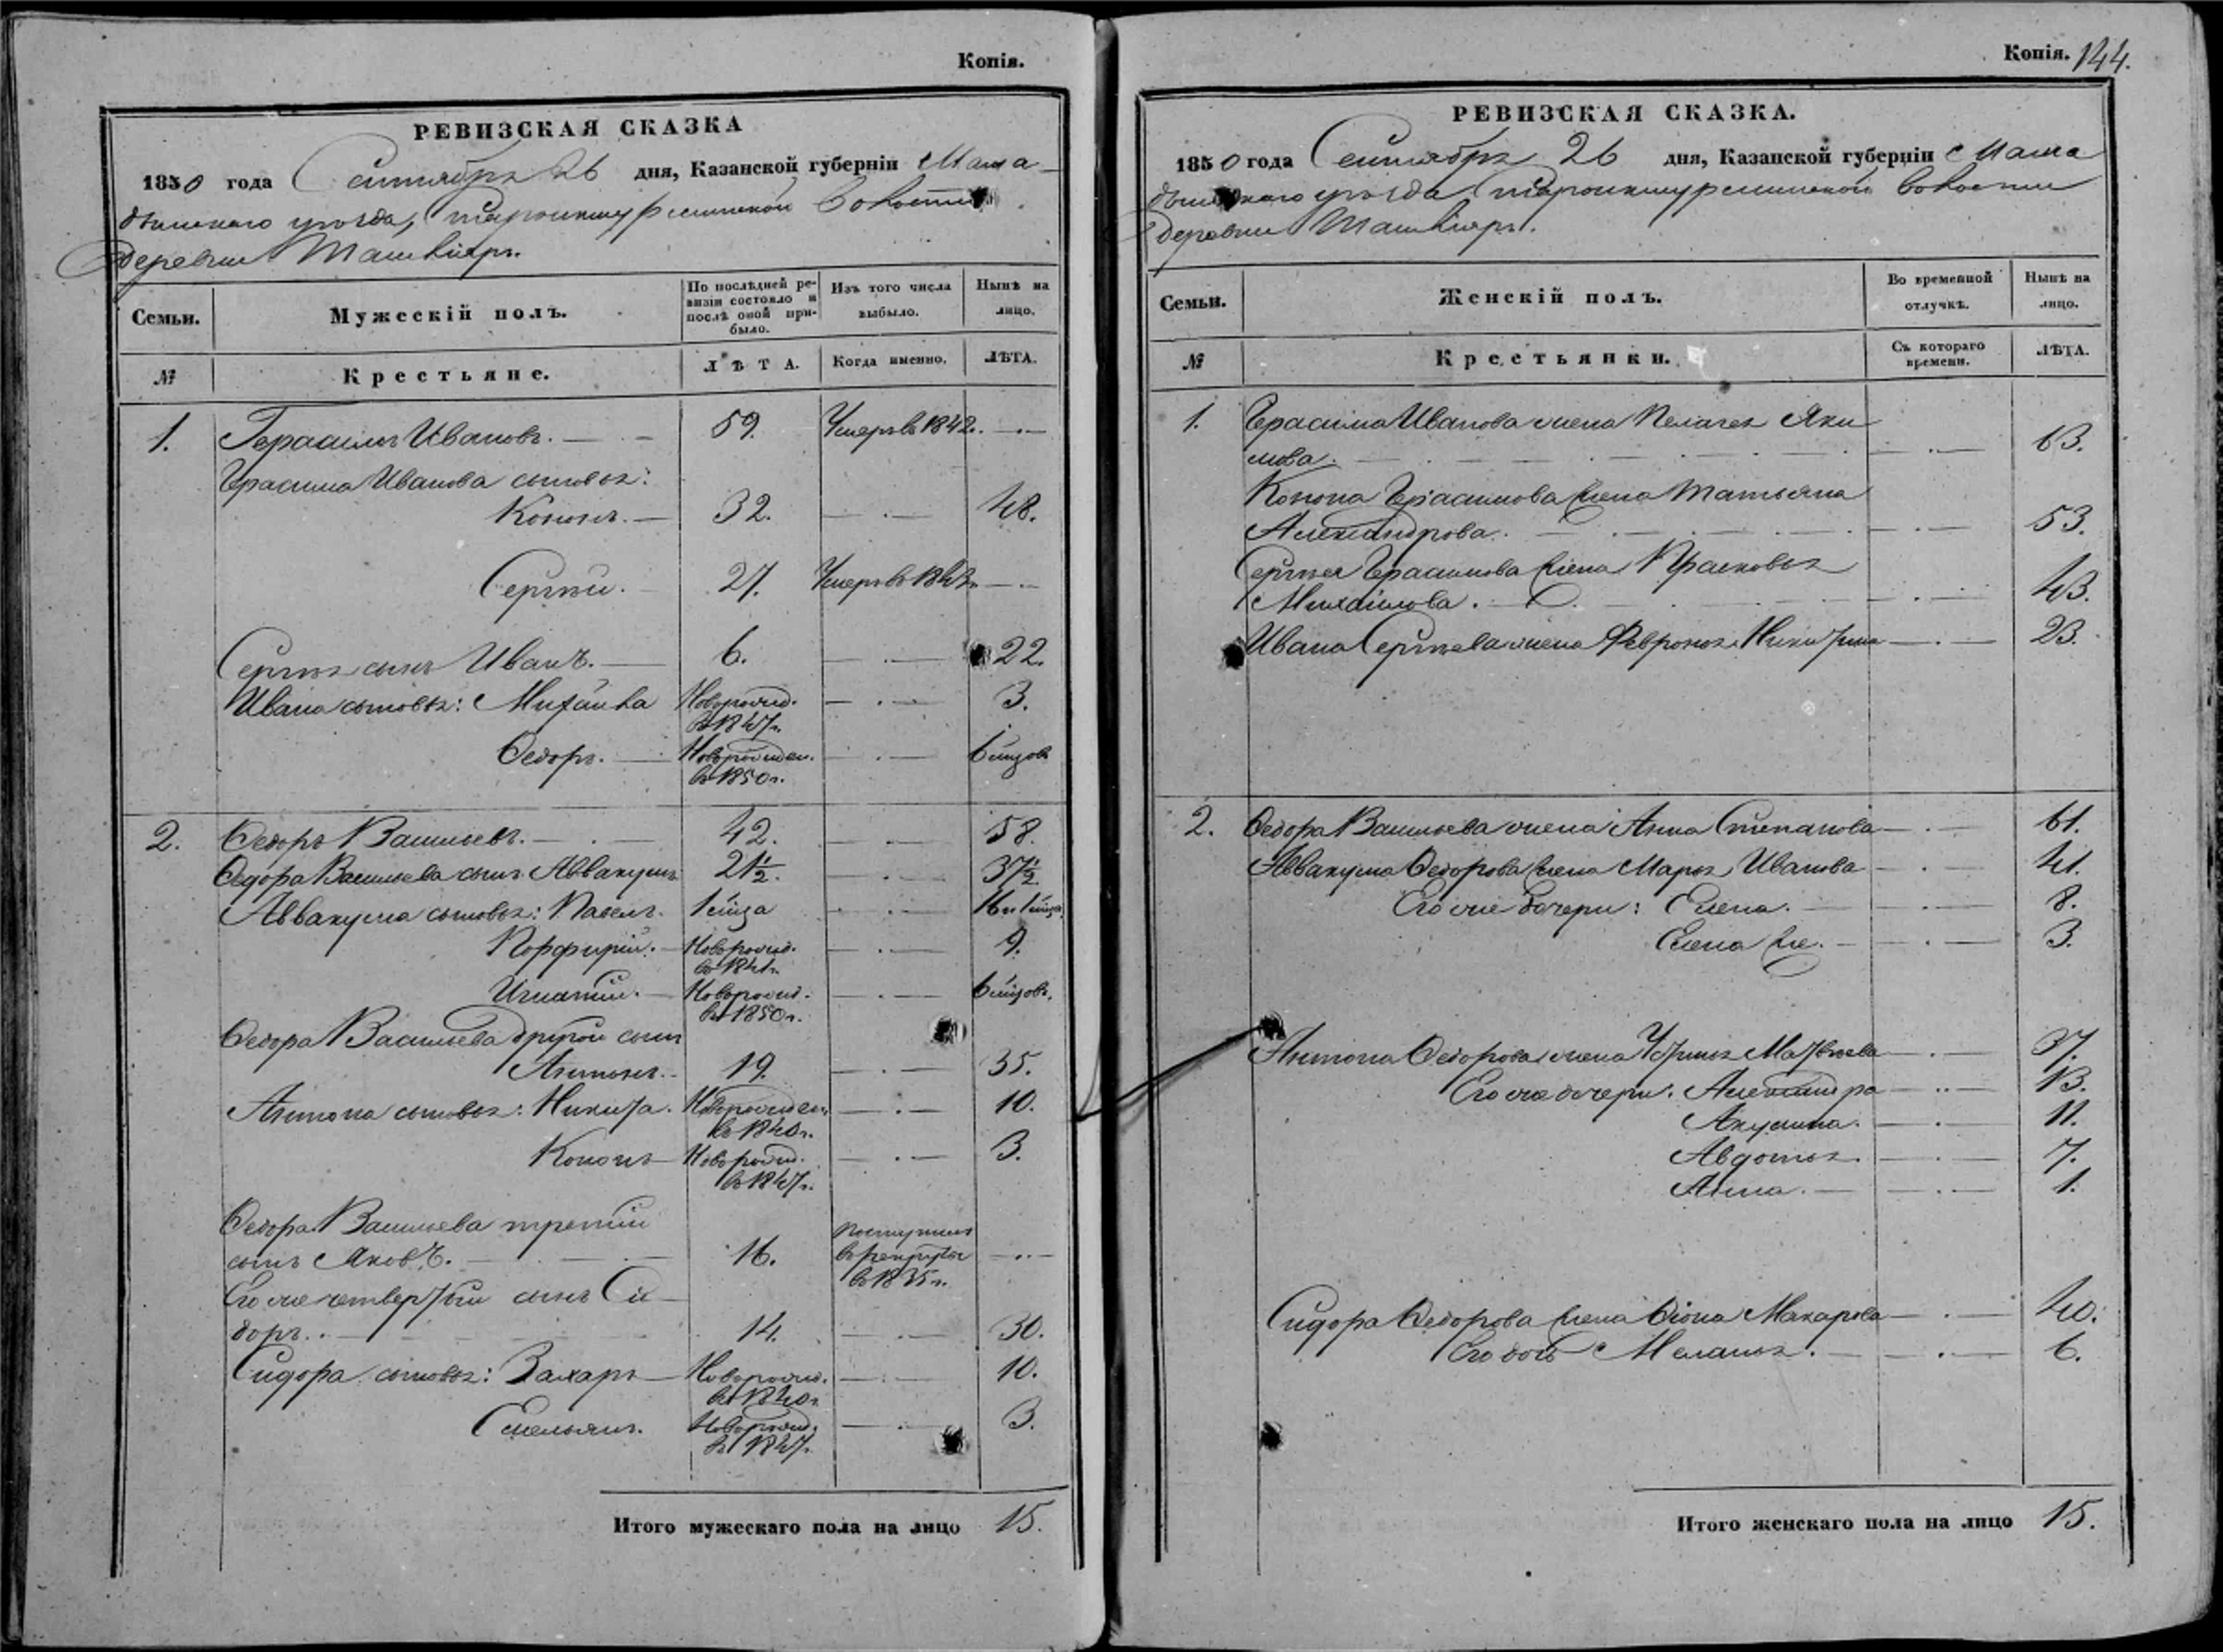 Копія.
РЕВИЗСКАЯ СКАЗКА
1850 года Сентября 26 дня, Казанской губерніи Мама-
дышскаго уѣзда, Старокишурминской волости
деревни Ташкияръ.
Семьи. Мужескій полъ. По послѣдней ре- Изъ того числа Нынѣ на
визіи состояло и выбыло. лицо.
послѣ оной при-
было.
№ Крестьяне. ЛѢТА. Когда именно. ЛѢТА.
1. Герасимъ Ивановъ. 59. Умеръ въ 1842.
Герасима Иванова сыновья:
Кононъ. 32. 48.
Сергѣй. 27. Умеръ въ
Сергѣя сынъ Иванъ. 6. 22.
Ивана сыновья: Михайла Новорожд. 3.
въ 1847г.
Ѳедоръ. Новорожден. 6 мцовъ
въ 1850г.
2. Ѳедоръ Васильевъ. 42. 58.
Ѳедора Васильева сынъ Аввакумъ 21½. 37½
Аввакума сыновья: Павелъ. 1 мца 16 и 1 мца
Порфирій. Новорожд. 9.
въ 1841г.
Игнатій. Новорожд. 6 мцовъ.
въ 1850г.
Ѳедора Васильева другой сынъ
Антонъ. 19. 35.
Антона сыновья: Никита. Новорожден. 10.
въ 1840г.
Кононъ Новорожд. 3.
въ 1847г.
Ѳедора Васильева третій
сынъ Яковъ. 16. Поступилъ
въ рекруты
въ 1835г.
Его же четвертый сынъ Си-
доръ. 14. 30.
Сидора сыновья: Захаръ Новорожд. 10.
въ 1840г.
Емельянъ. Новорожд. 3.
въ 1847г.
Итого мужескаго пола на лицо 15.
Копія. 144.
РЕВИЗСКАЯ СКАЗКА.
1850 года Сентября 26 дня, Казанской губерніи Мама
дышскаго уѣзда Старокишурминской волости
деревни Ташкияръ.
Семьи. Женскій полъ. Во временной Нынѣ на
отлучкѣ. лицо.
№ Крестьянки. Съ котораго ЛѢТА.
времени.
1. Герасима Иванова жена Пелагея Яки
мова. 63.
Конона Герасимова жена Татьяна
Александрова. 53.
Сергѣя Герасимова жена Прасковья
Михайлова. 43.
Ивана Сергѣева жена Февронья Никитина 23.
2. Ѳедора Васильева жена Анна Степанова 61.
Аввакума Ѳедорова жена Марья Иванова 41.
Его же дочери: Елена. 8.
Елена же. 3.
Антона Ѳедорова жена Устинья Матвѣева 37.
Его же дочери: Александра 13.
Акулина. 11.
Авдотья. 7.
Анна. 1.
Сидора Ѳедорова жена Макарова 40.
Его дочь Меланья. 6.
Итого женскаго пола на лицо 15.